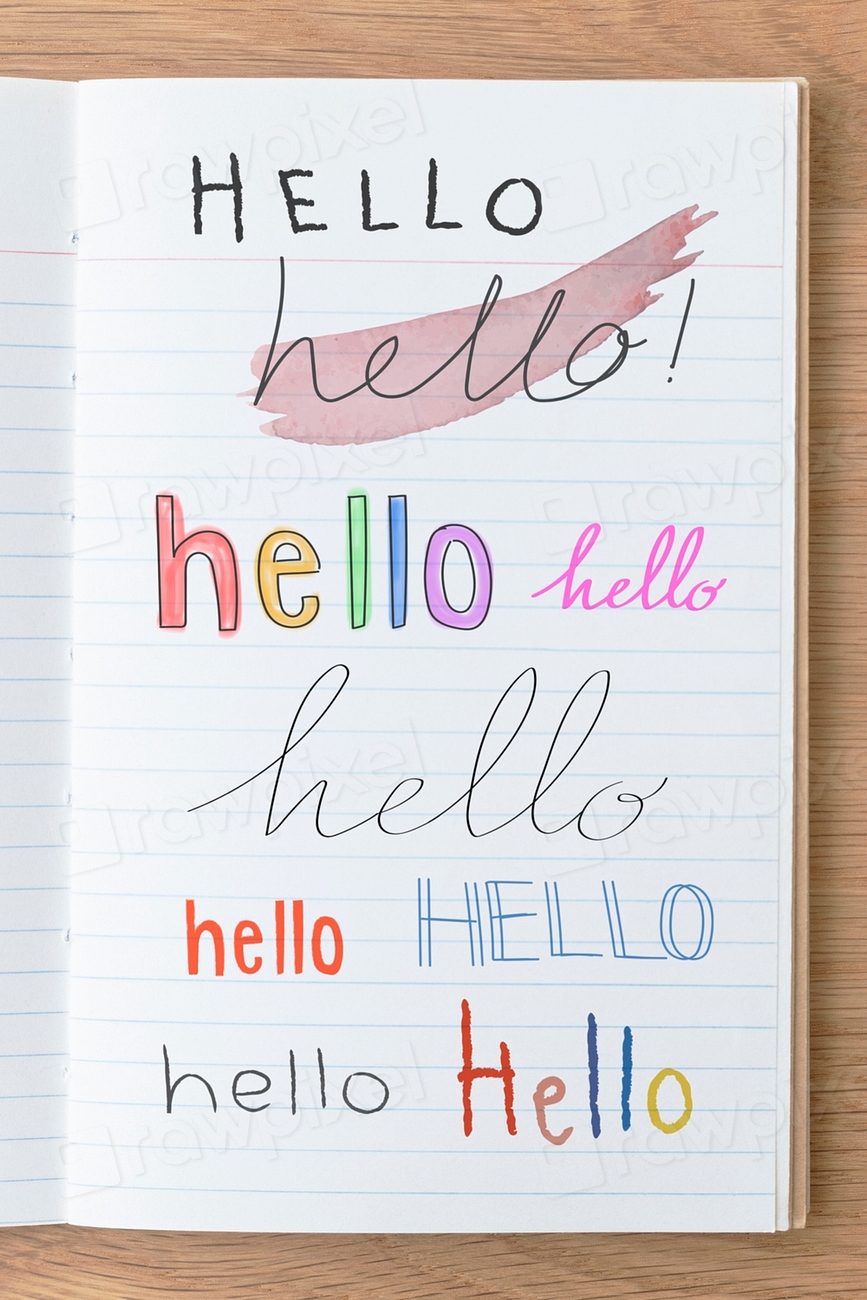 HELLO
hello!
hello hello
hello
hello HELLO
hello Hello
rawpixel